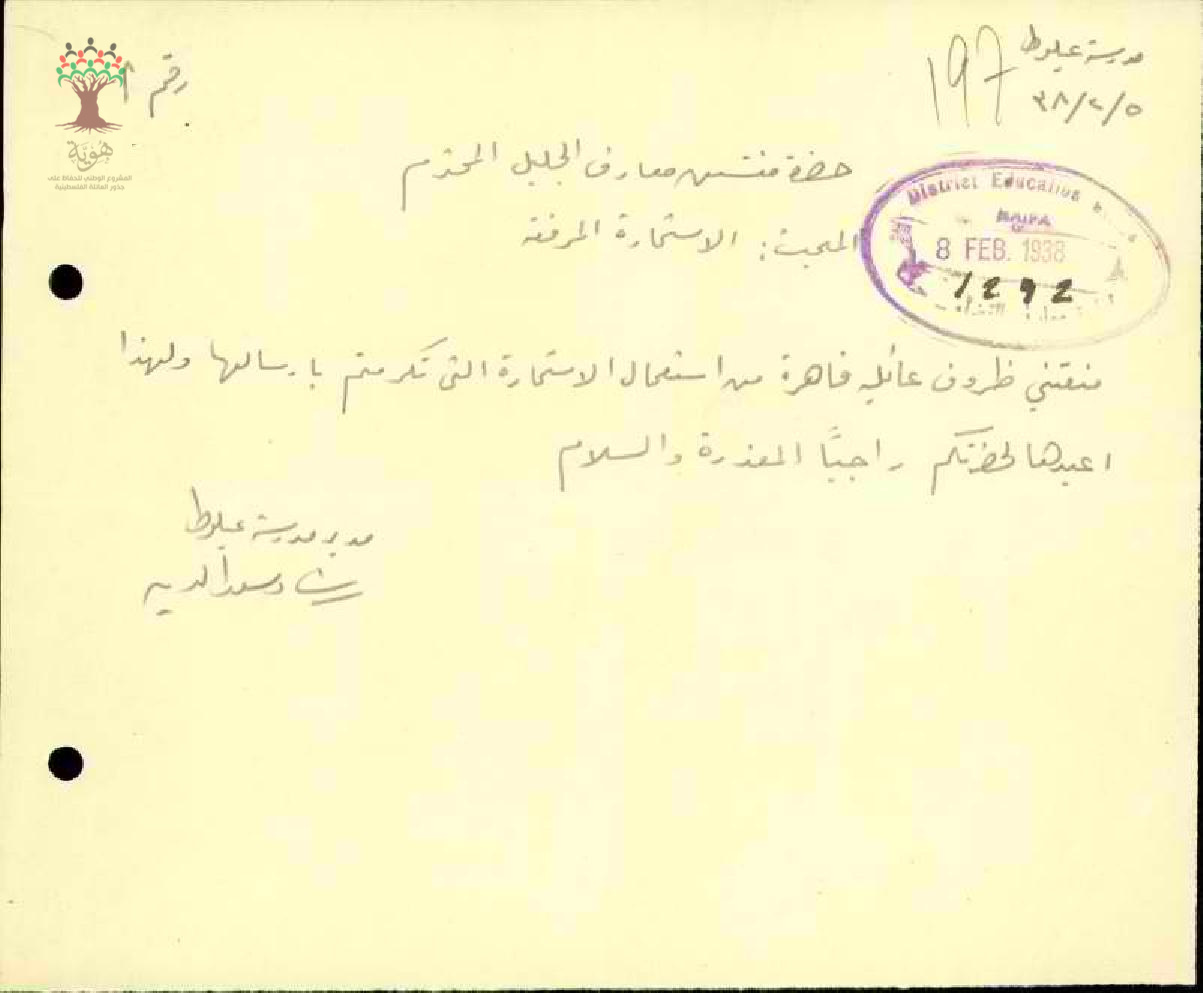 مدرسة عيلوط
197
٣٨/٢/٥
رقم ٨
هوية
المشروع الوطني للحفاظ على
جذور العائلة الفلسطينية
حضرة مفتش معارف الجليل المحترم
المبحث: الاستمارة المرفقة
District Education
HAIFA
8 FEB. 1938
1292
منعتني ظروف عائلية قاهرة من استعمال الاستمارة التي تكرمتم بارسالها ولهذا
اعيدها لحضرتكم راجيًا المعذرة والسلام
مدير مدرسة عيلوط
رشاد سعد الدين